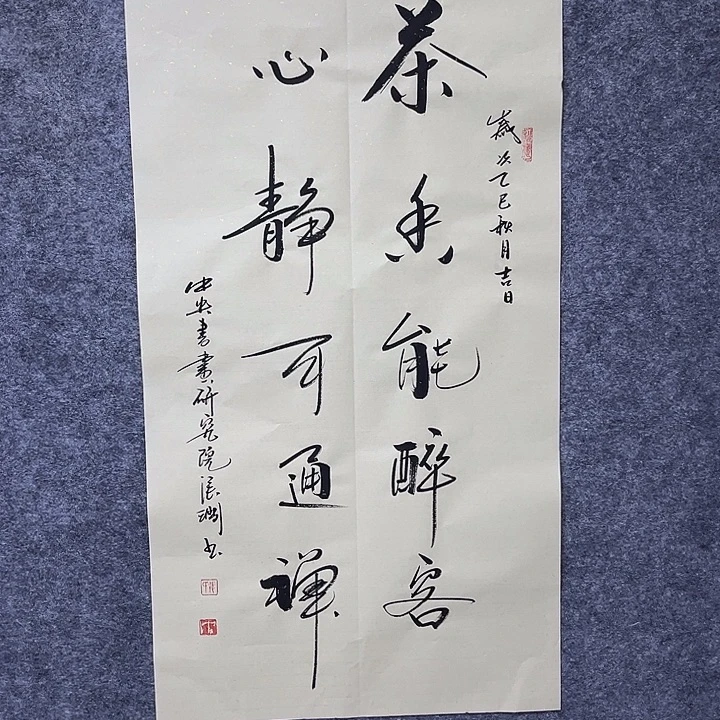 歲次乙巳秋月吉日
茶香能醉客
心静可通禅
中央書畫研究院張
書